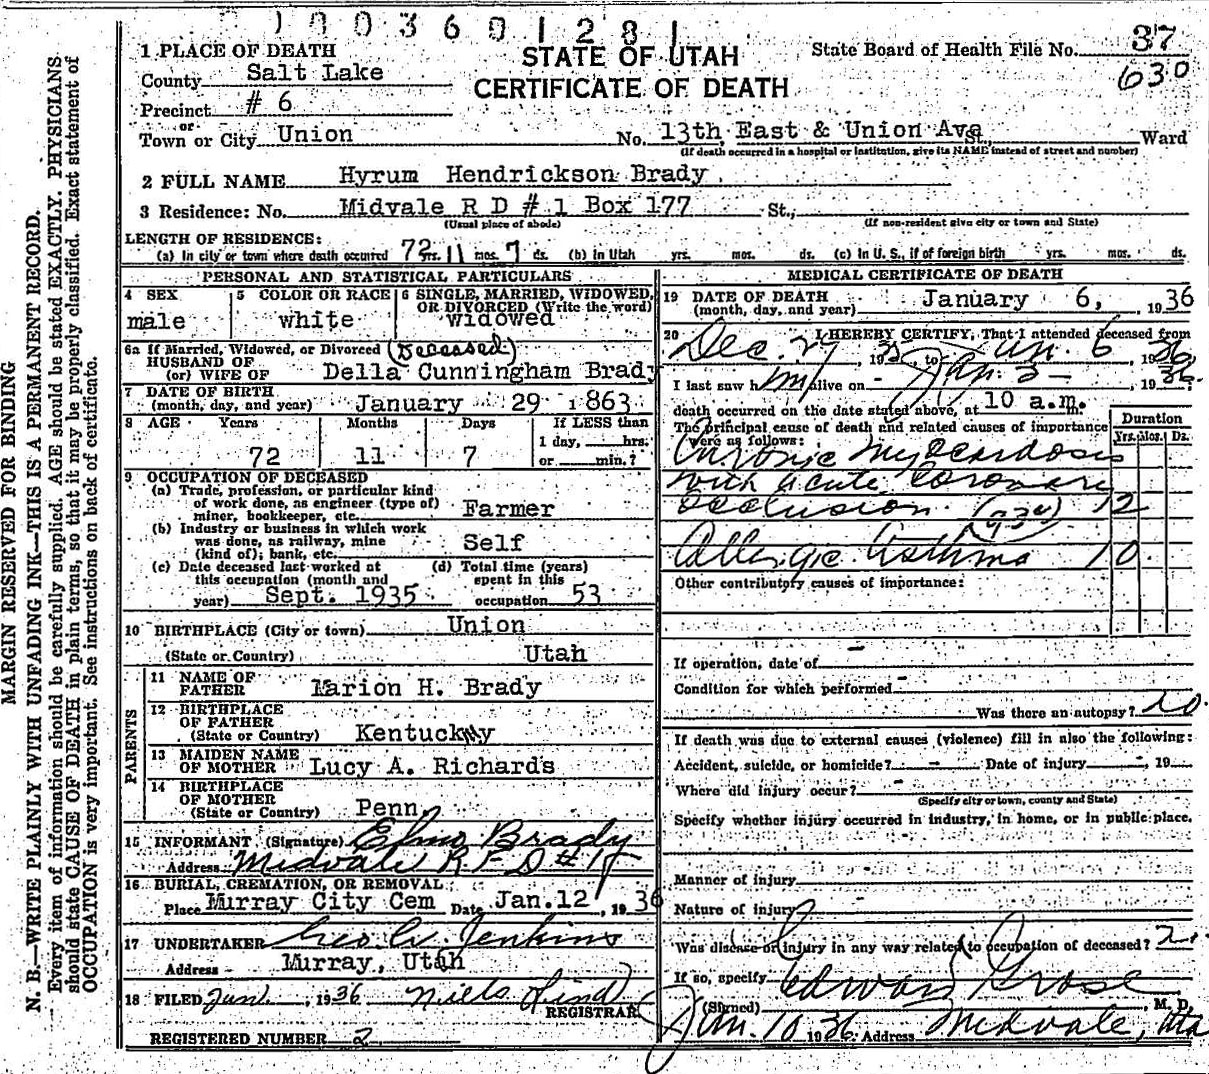 1003601281
1 PLACE OF DEATH
STATE OF UTAH
CERTIFICATE OF DEATH
State Board of Health File No. 37
630
County Salt Lake
Precinct # 6
or
Town or City Union No. 13th East & Union Ave St., Ward
(If death occurred in a hospital or institution, give its NAME instead of street and number)
2 FULL NAME Hyrum Hendrickson Brady
3 Residence: No. Midvale R D # 1 Box 177 St.,
(Usual place of abode) (If non-resident give city or town and State)
LENGTH OF RESIDENCE:
(a) In city or town where death occurred 72 yrs. 11 mos. 7 ds. (b) In Utah yrs. mos. ds. (c) In U. S., if of foreign birth yrs. mos. ds.
PERSONAL AND STATISTICAL PARTICULARS
4 SEX
male
5 COLOR OR RACE
white
6 SINGLE, MARRIED, WIDOWED,
OR DIVORCED (Write the word)
widowed
6a If Married, Widowed, or Divorced (Deceased)
HUSBAND OF
(or) WIFE OF Della Cunningham Brady
7 DATE OF BIRTH
(month, day, and year) January 29 1863
8 AGE Years Months Days If LESS than
1 day, hrs.
72 11 7 or min.?
9 OCCUPATION OF DECEASED
(a) Trade, profession, or particular kind
of work done, as engineer (type of)
miner, bookkeeper, etc. Farmer
(b) Industry or business in which work
was done, as railway, mine
(kind of); bank, etc. Self
(c) Date deceased last worked at
this occupation (month and
year) Sept. 1935
(d) Total time (years)
spent in this
occupation 53
10 BIRTHPLACE (City or town) Union
(State or Country) Utah
PARENTS
11 NAME OF
FATHER Marion H. Brady
12 BIRTHPLACE
OF FATHER
(State or Country) Kentucky
13 MAIDEN NAME
OF MOTHER Lucy A. Richards
14 BIRTHPLACE
OF MOTHER
(State or Country) Penn
15 INFORMANT (Signature) Elmo Brady
Address Midvale R F D # 1
16 BURIAL, CREMATION, OR REMOVAL
Place Murray City Cem Date Jan. 12, 1936
17 UNDERTAKER Geo W Jenkins
Address Murray, Utah
18 FILED Jan 1936 Niels Lind
REGISTRAR
REGISTERED NUMBER 2
MEDICAL CERTIFICATE OF DEATH
19 DATE OF DEATH
(month, day, and year) January 6, 1936
20 I HEREBY CERTIFY, That I attended deceased from
Dec. 27 1935 to Jan. 6, 1936
I last saw him alive on Jan. 5, 1936
death occurred on the date stated above, at 10 a.m.
The principal cause of death and related causes of importance
were as follows:
Duration
Yrs. Mos. Ds.
Chronic Myocardosis
with acute Coronary
occlusion (93c) 12
Allergic Asthma 10
Other contributory causes of importance:
If operation, date of -
Condition for which performed -
Was there an autopsy? no
If death was due to external causes (violence) fill in also the following:
Accident, suicide, or homicide? - Date of injury -, 19
Where did injury occur? -
(Specify city or town, county and State)
Specify whether injury occurred in industry, in home, or in public place.
Manner of injury
Nature of injury
Was disease or injury in any way related to occupation of deceased?
If so, specify
(Signed) Edward Grose, M. D.
Jan. 10 1936 Address Midvale, Uta
MARGIN RESERVED FOR BINDING
N. B.—WRITE PLAINLY WITH UNFADING INK—THIS IS A PERMANENT RECORD.
Every item of information should be carefully supplied. AGE should be stated EXACTLY. PHYSICIANS
should state CAUSE OF DEATH in plain terms, so that it may be properly classified. Exact statement of
OCCUPATION is very important. See instructions on back of certificate.